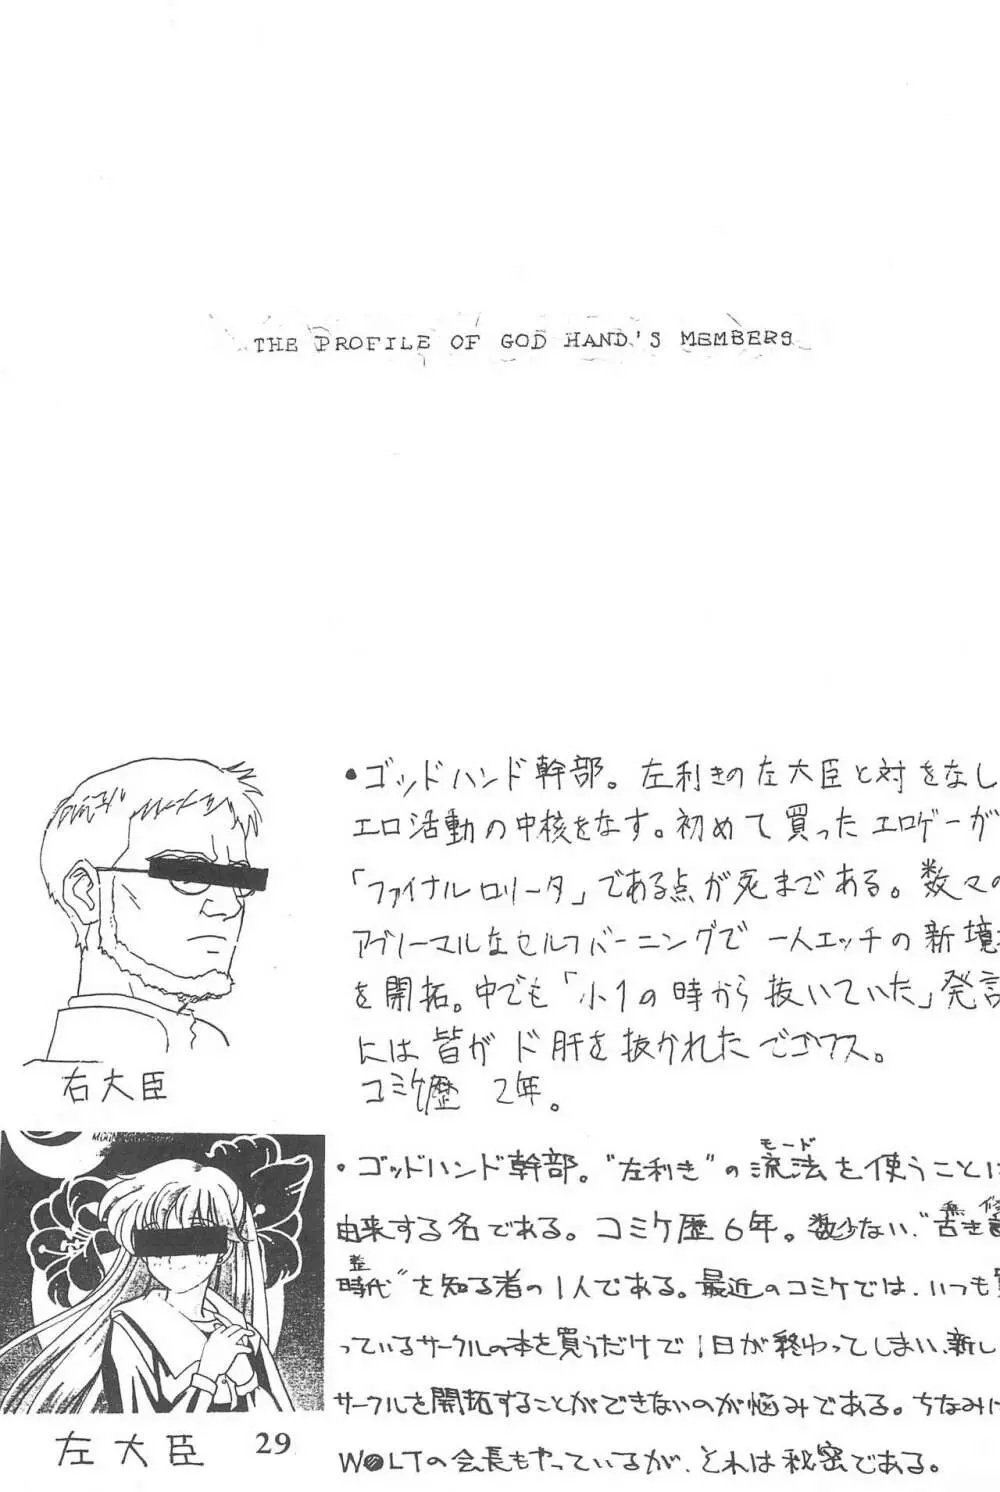 THE PROFILE OF GOD HAND'S MEMBERS
•ゴッドハンド幹部。左利きの左大臣と対をなし
エロ活動の中核をなす。初めて買ったエロゲーが
「ファイナルロリータ」である点が死まである。数々の
アブノーマルなセルフバーニングで一人エッチの新境
を開拓。中でも「小1の時から抜いていた」発言
には皆がド肝を抜かれたでゴワス。
コミケ歴 2年。
右大臣
•ゴッドハンド幹部。“左利き”の流法を使うことに
モード
由来する名である。コミケ歴6年。数少ない“古き
時代”を知る者の1人である。最近のコミケでは、いつも買
っているサークルの本を買うだけで1日が終わってしまい、新し
サークルを開拓することができないのが悩みである。ちなみに
W●LTの会長もやっているが、それは秘密である。
左大臣
29